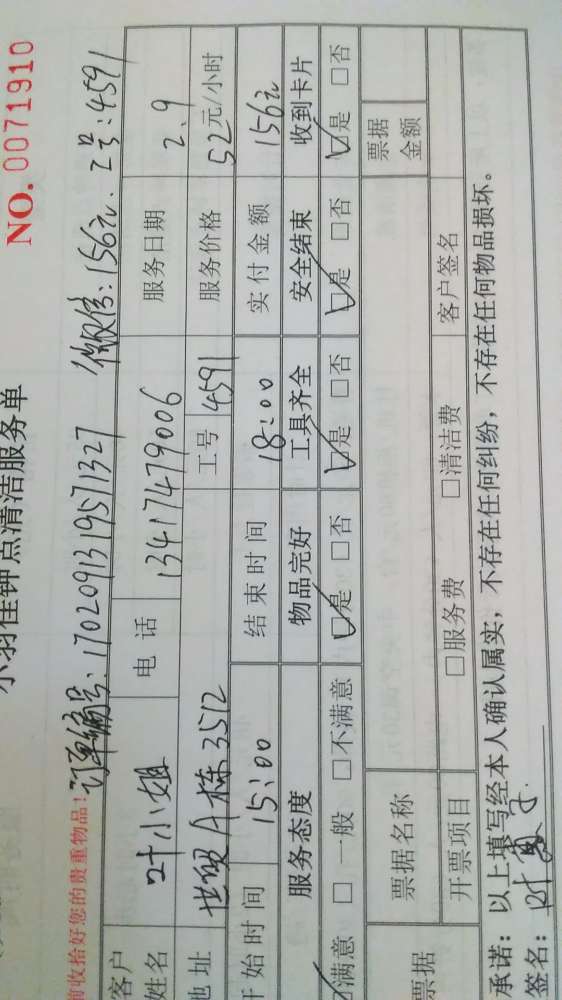 小羽佳钟点清洁服务单
NO.0071910
前收拾好您的贵重物品!
订单编号:1702091319571327 微信:156元、工号:4591
客户姓名 叶小姐 电话 13417479006 服务日期 2.9
地址 世贸A栋3512 工号 4591 服务价格 52元/小时
开始时间 15:00 结束时间 18:00 实付金额 156元
服务态度 物品完好 工具齐全 安全结束 收到卡片
☑满意 □一般 □不满意 ☑是 □否 ☑是 □否 ☑是 □否 ☑是 □否
票据 票据名称 票据金额
开票项目 □服务费 □清洁费 客户签名
承诺:以上填写经本人确认属实,不存在任何纠纷,不存在任何物品损坏。
签名: